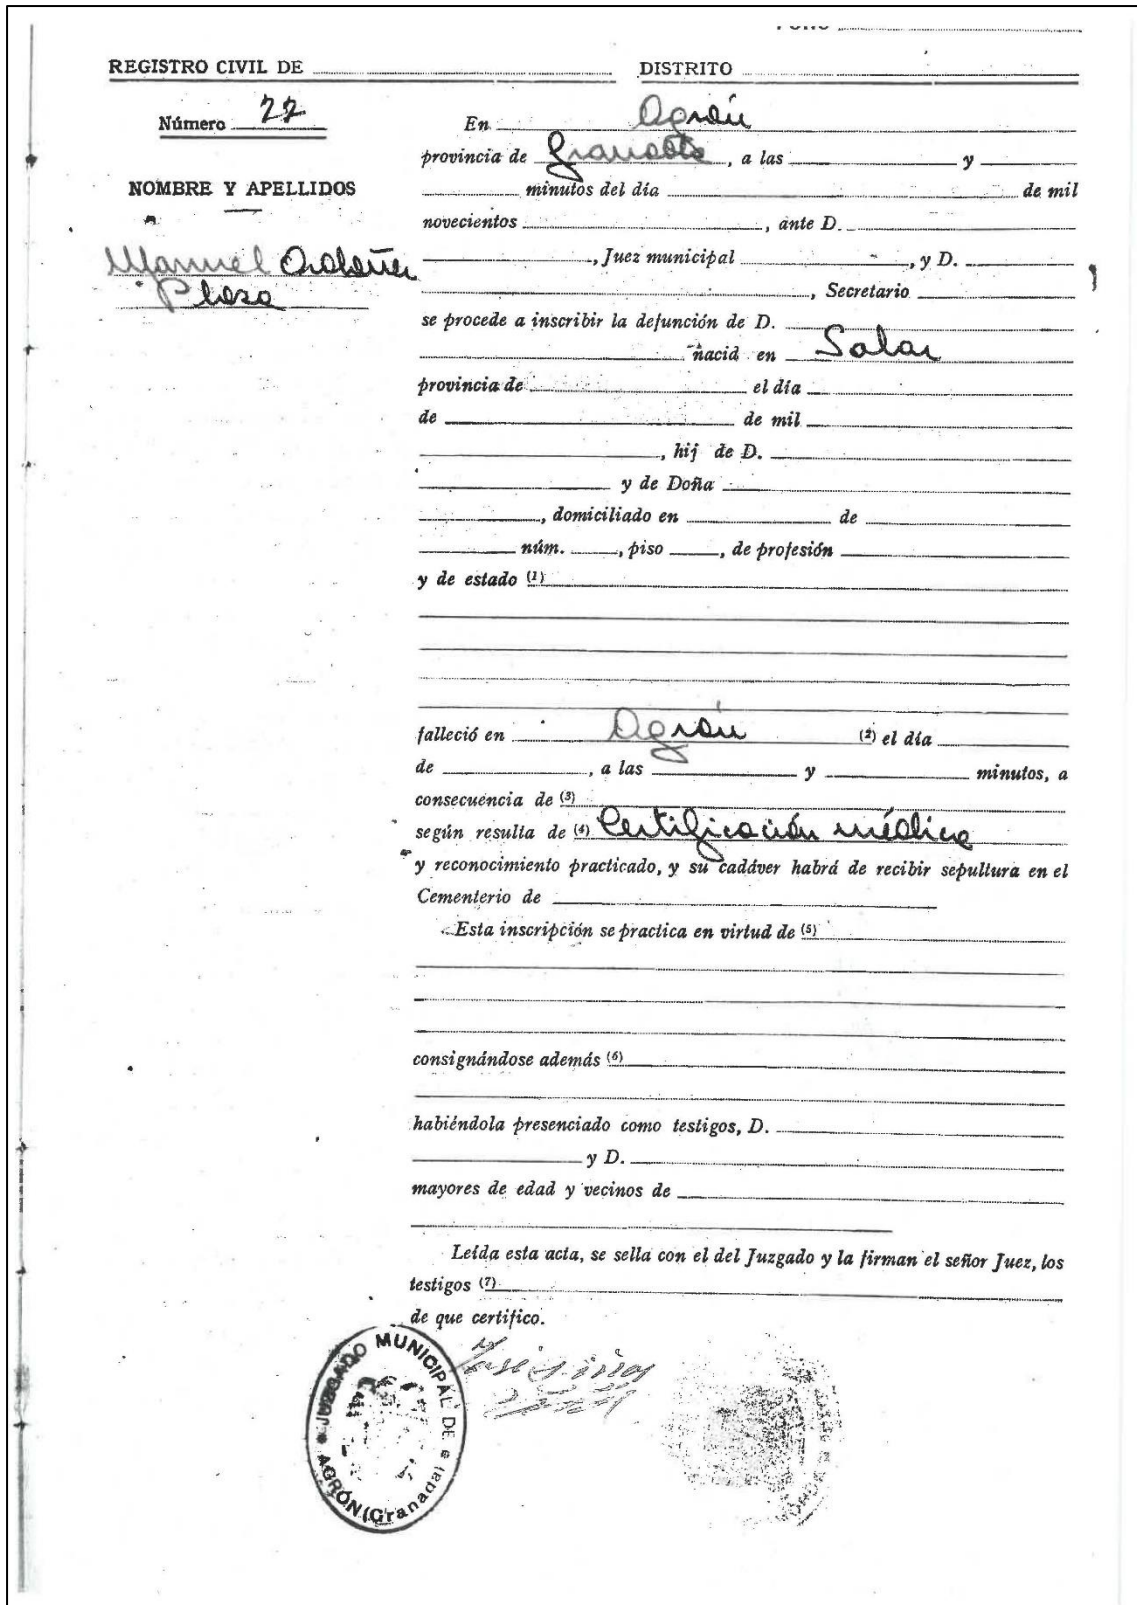 REGISTRO CIVIL DE DISTRITO
Número 22
En Agrón
provincia de Granada, a las y
NOMBRE Y APELLIDOS
minutos del día de mil
novecientos , ante D.
Manuel Ordoñez
Plaza
, Juez municipal , y D.
, Secretario
se procede a inscribir la defunción de D.
nacid en Salar
provincia de el día
de de mil
, hij de D.
y de Doña
, domiciliado en de
núm. , piso , de profesión
y de estado (1)
falleció en Agrón (2) el día
de , a las y minutos, a
consecuencia de (3)
según resulta de (4) Certificación médica
y reconocimiento practicado, y su cadáver habrá de recibir sepultura en el
Cementerio de
Esta inscripción se practica en virtud de (5)
consignándose además (6)
habiéndola presenciado como testigos, D.
y D.
mayores de edad y vecinos de
Leída esta acta, se sella con el del Juzgado y la firman el señor Juez, los
testigos (7)
de que certifico.
JUZGADO MUNICIPAL DE
AGRÓN (Granada)